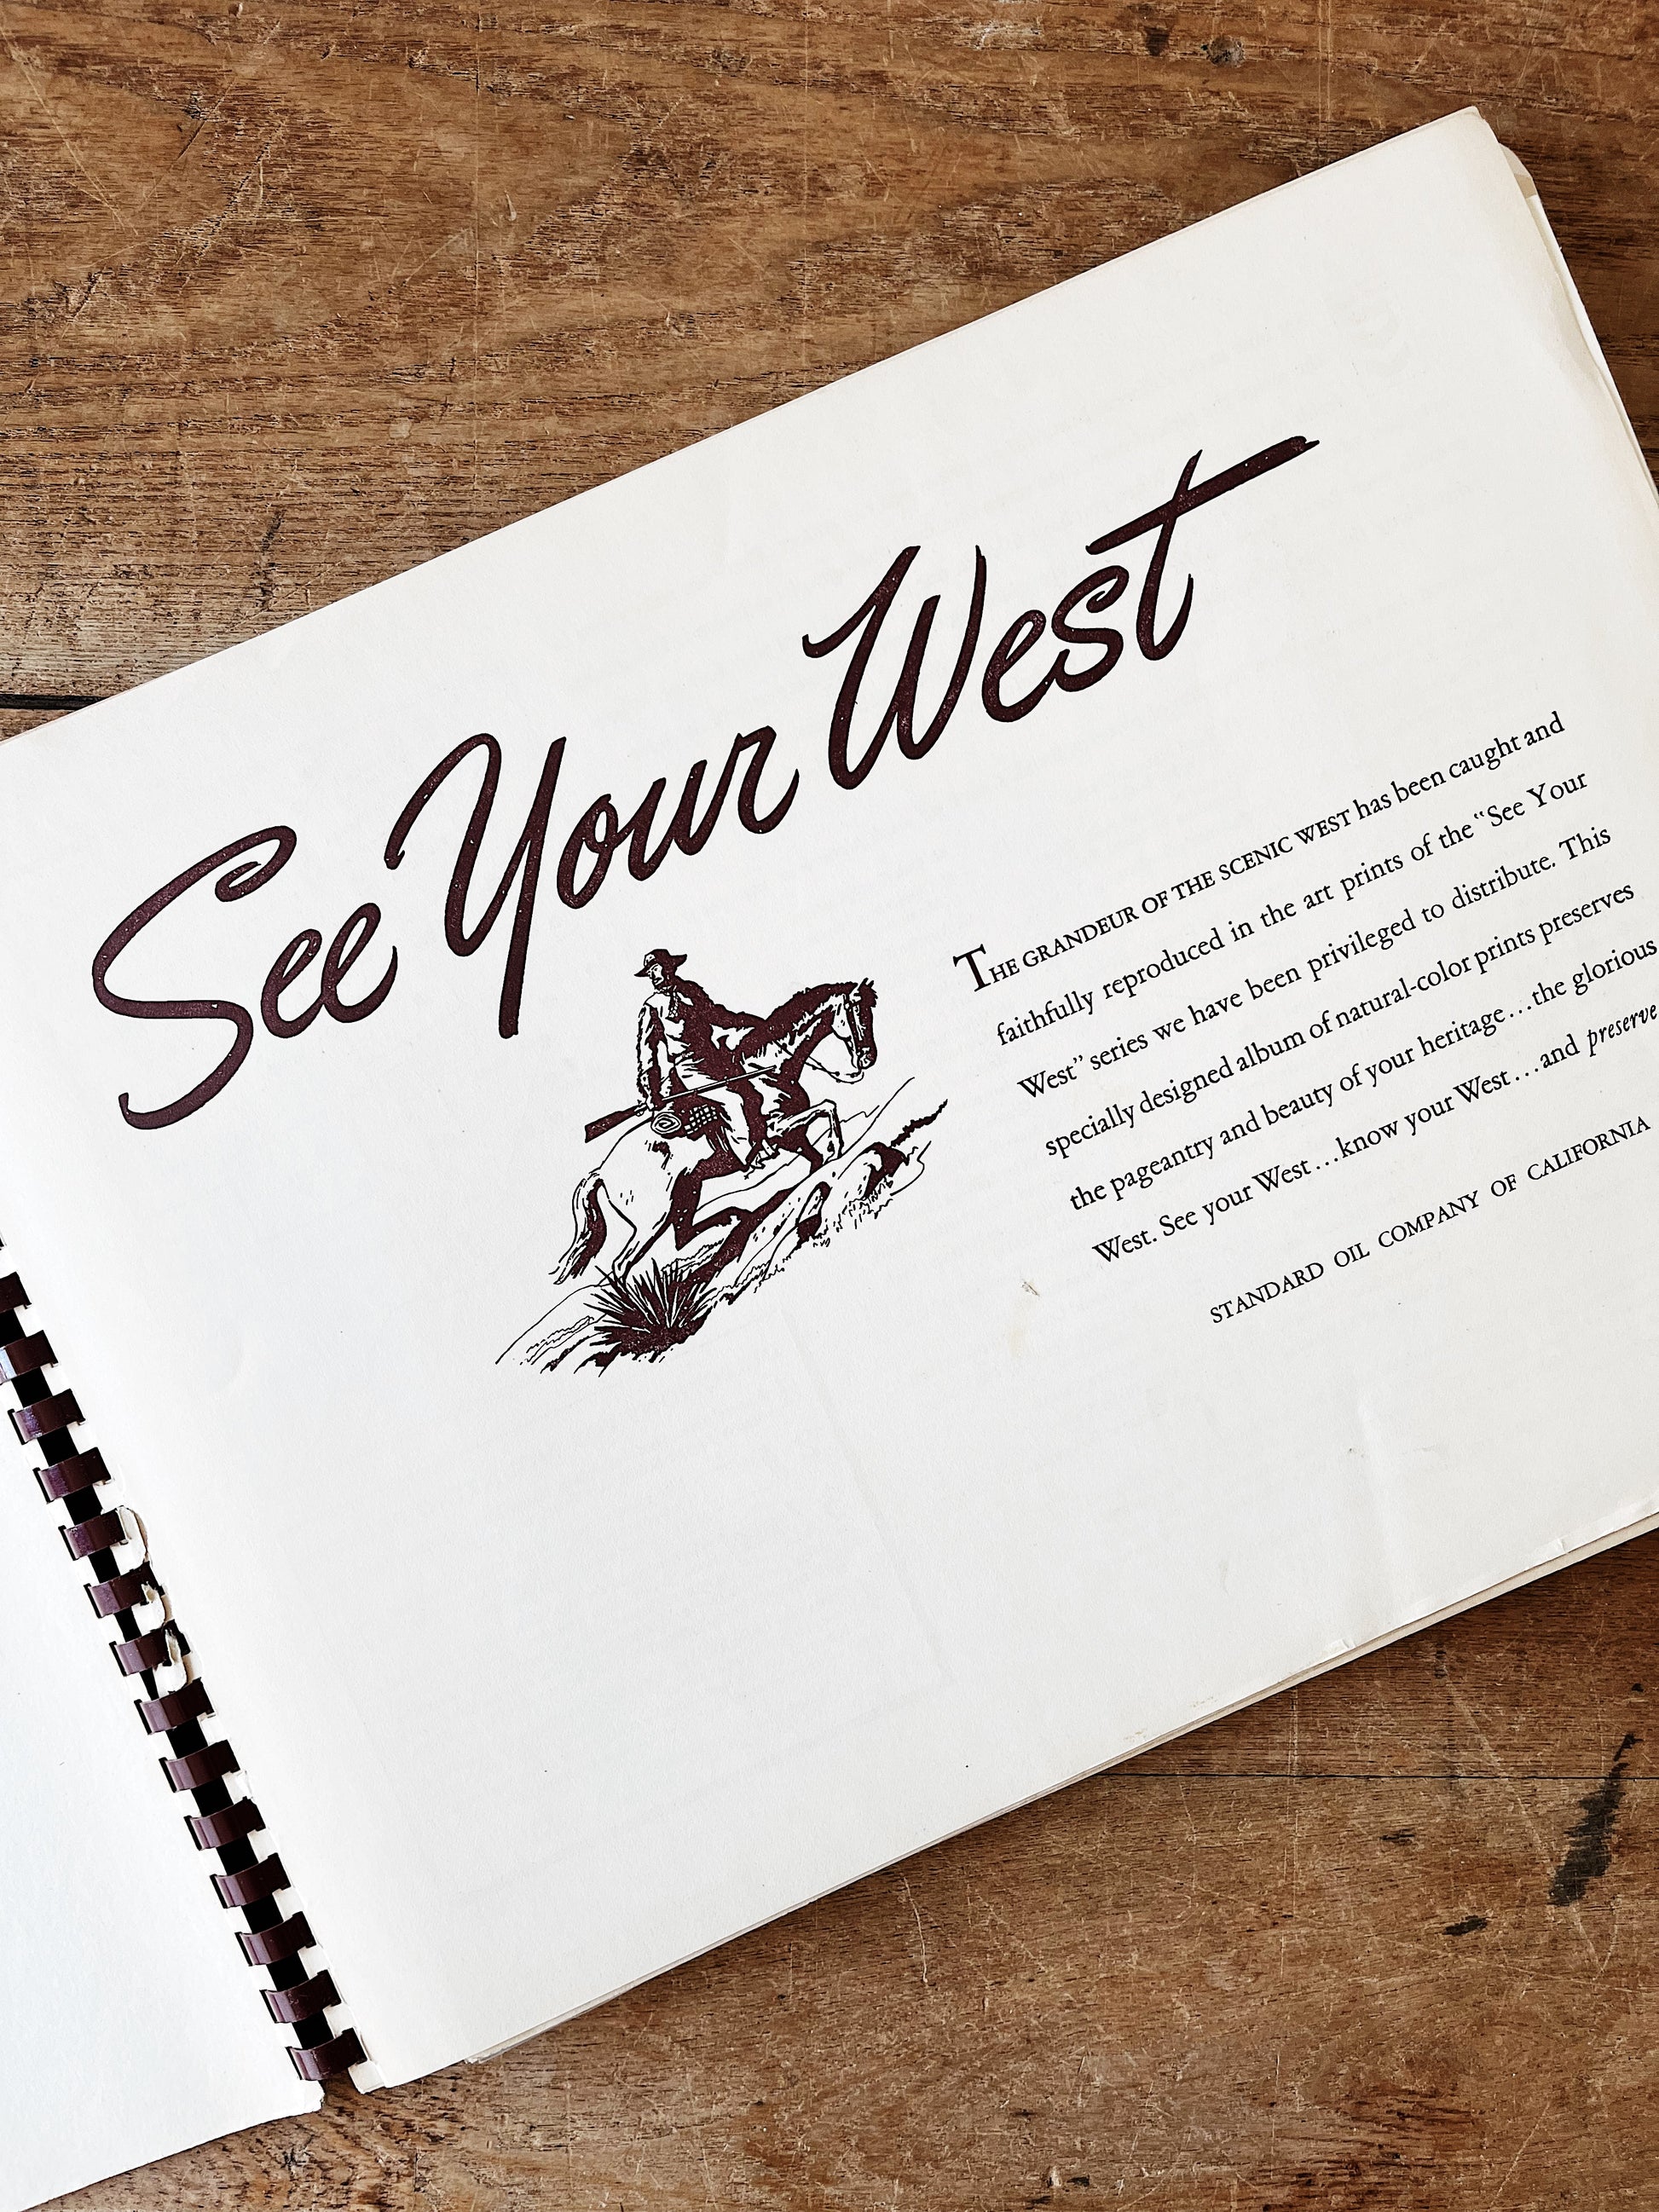 See Your West
THE GRANDEUR OF THE SCENIC WEST has been caught and
faithfully reproduced in the art prints of the “See Your
West” series we have been privileged to distribute. This
specially designed album of natural-color prints preserves
the pageantry and beauty of your heritage...the glorious
West. See your West...know your West...and preserve
STANDARD OIL COMPANY OF CALIFORNIA